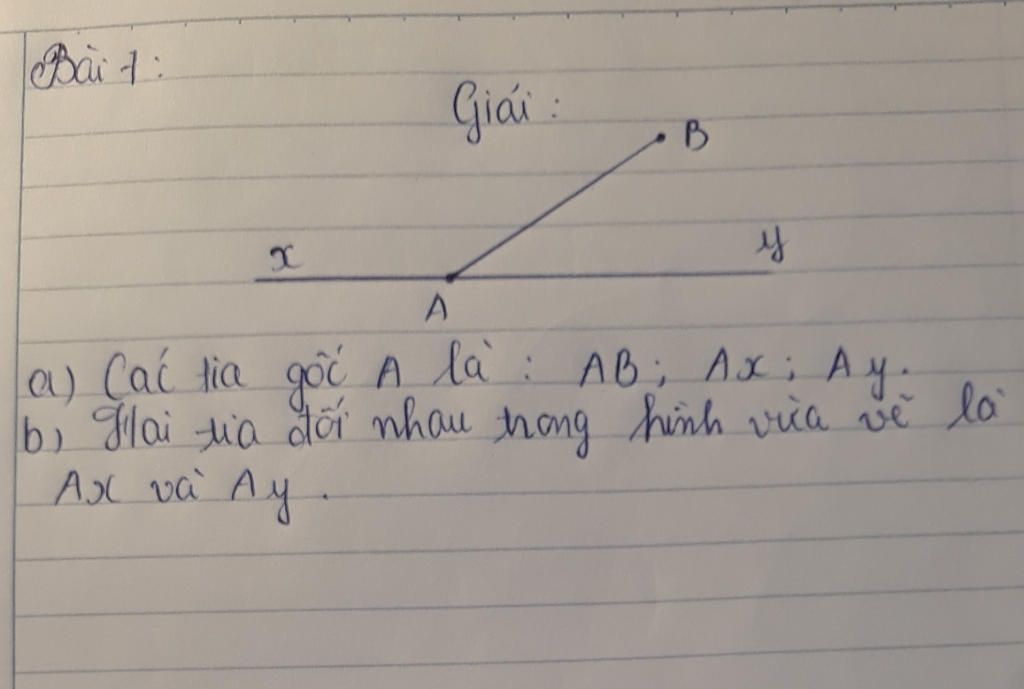 Bài 1:
Giải:
B
x
y
A
a) Các tia gốc A là: AB; Ax; Ay.
b) Hai tia đối nhau trong hình vừa vẽ là
Ax và Ay.